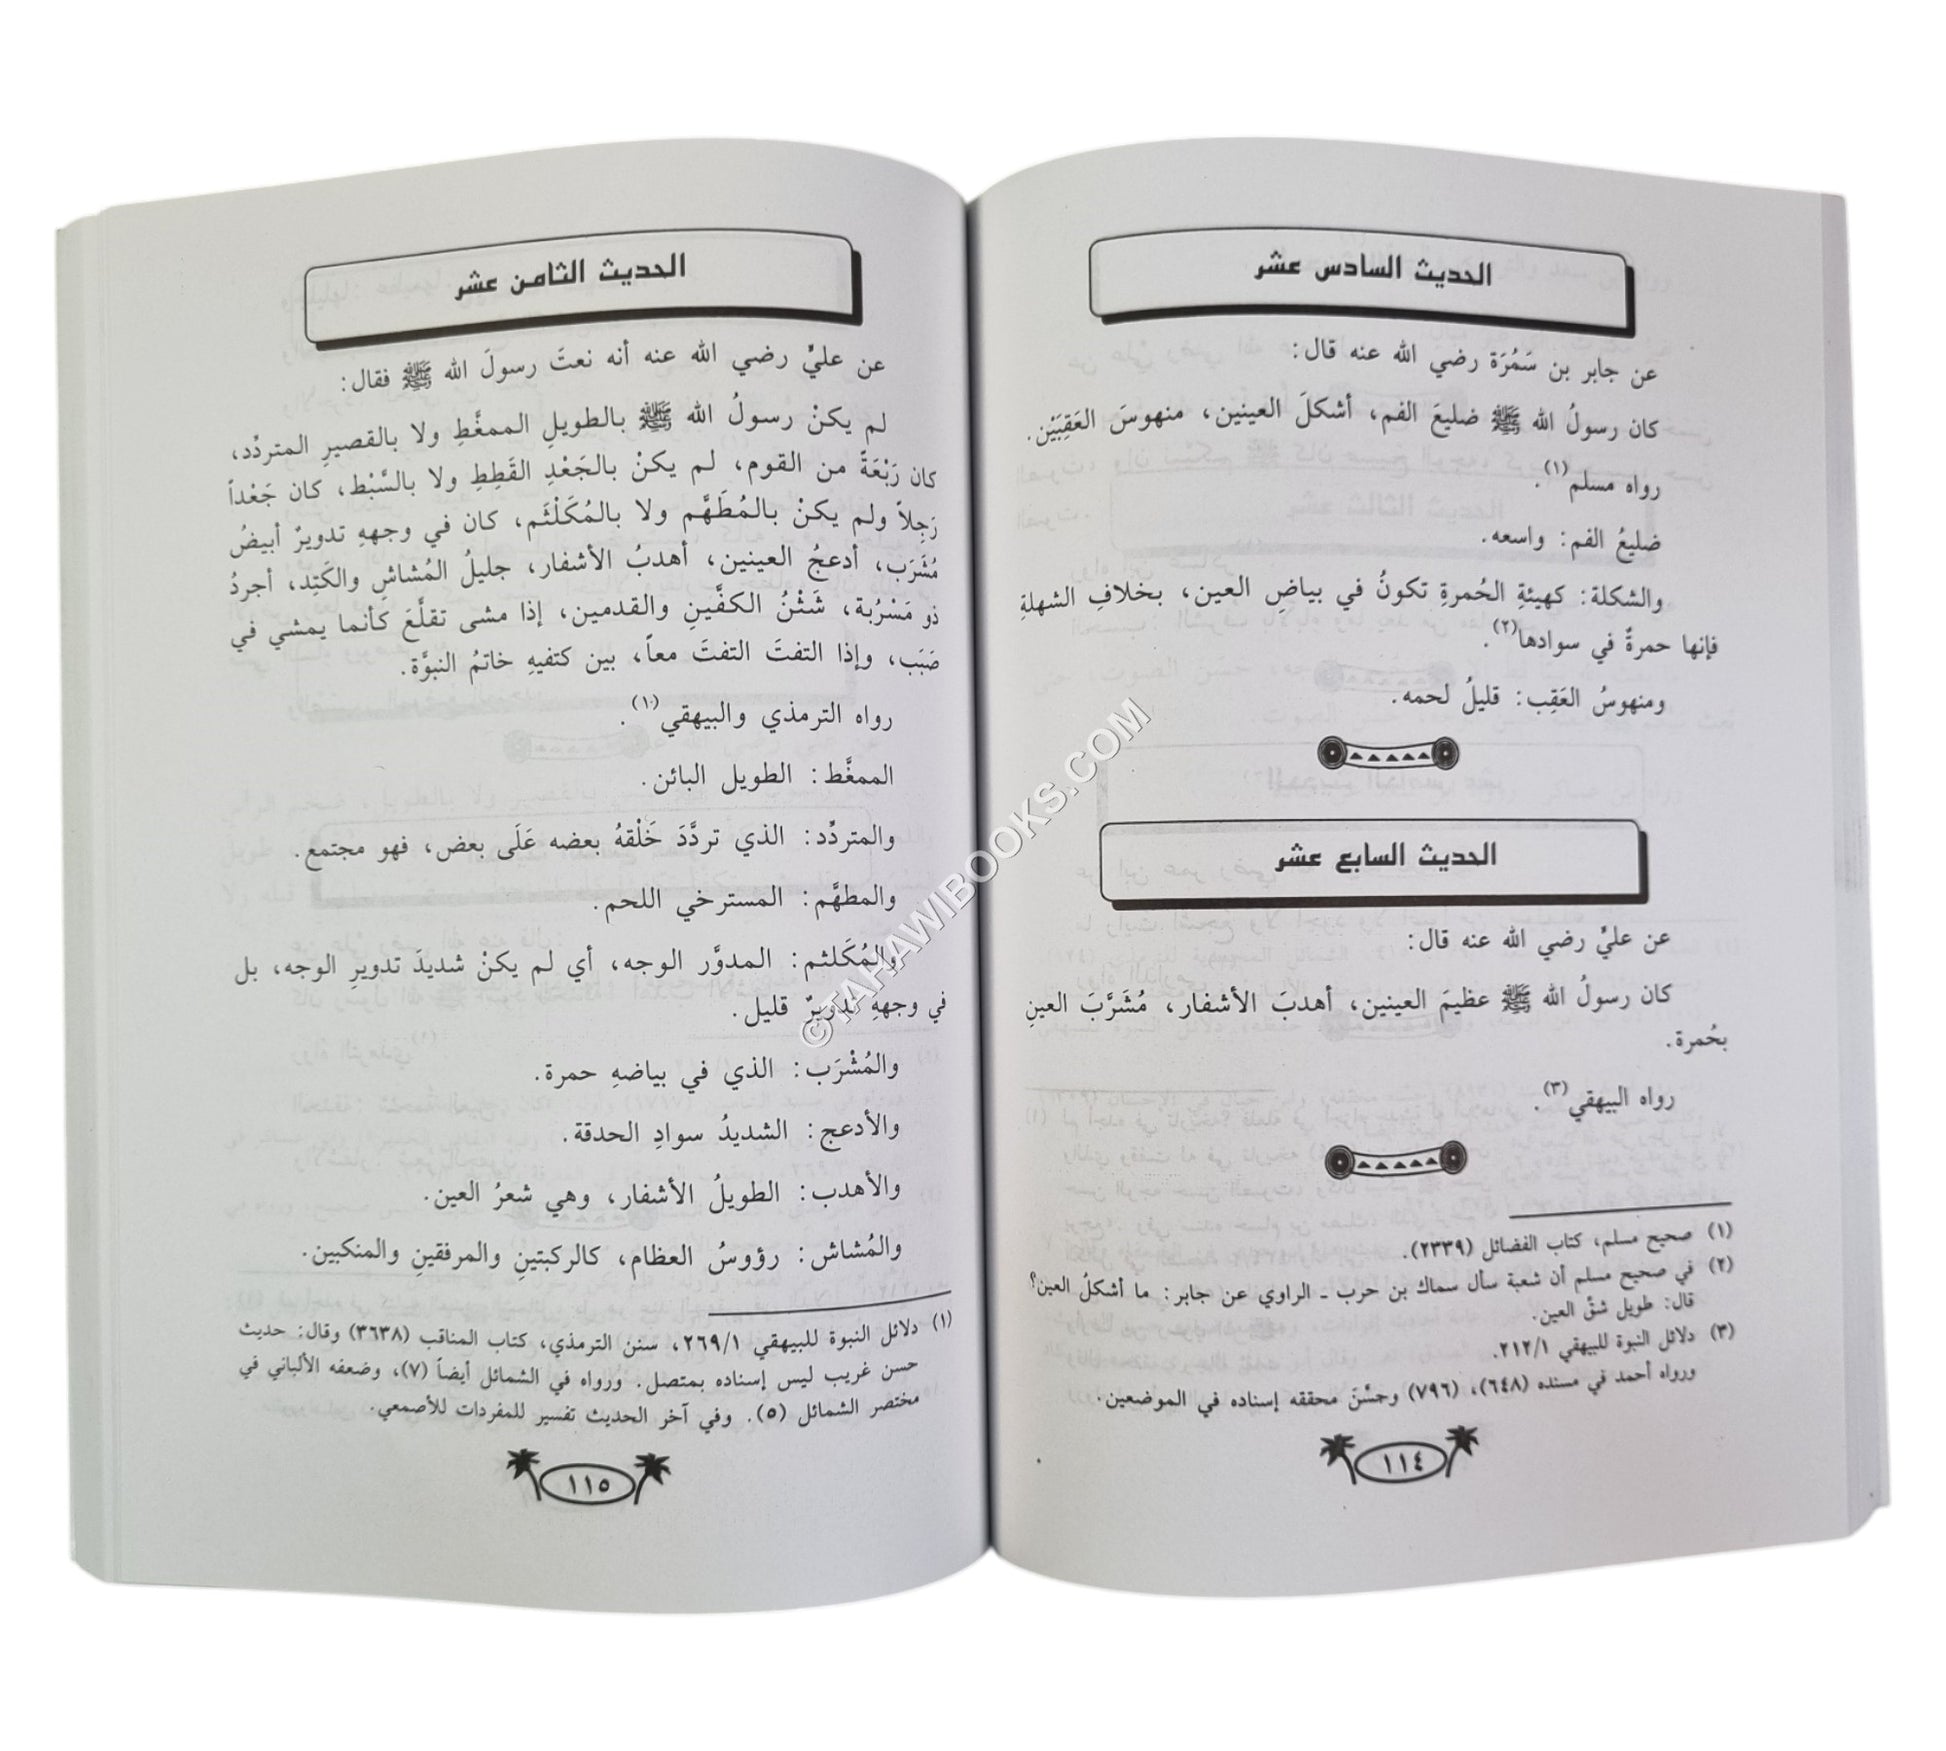 الحديث السادس عشر
عن جابر بن سَمُرَة رضي الله عنه قال:
كان رسولُ الله ﷺ ضليعَ الفم، أشكلَ العينين، منهوسَ العَقِبَيْن.
رواه مسلم(١).
ضليعُ الفم: واسعه.
والشكلة: كهيئةِ الحُمرةِ تكونُ في بياضِ العين، بخلافِ الشهلةِ
فإنها حمرةٌ في سوادها(٢).
ومنهوسُ العَقِب: قليلُ لحمه.
الحديث السابع عشر
عن عليٍّ رضي الله عنه قال:
كان رسولُ الله ﷺ عظيمَ العينين، أهدبَ الأشفار، مُشَرَّبَ العينِ
بحُمرة.
رواه البيهقي(٣).
(١) صحيح مسلم، كتاب الفضائل (٢٣٣٩).
(٢) في صحيح مسلم أن شعبة سأل سماك بن حرب ـ الراوي عن جابر: ما أشكلُ العين؟
قال: طويل شقّ العين.
(٣) دلائل النبوة للبيهقي ٢١٢/١.
ورواه أحمد في مسنده (٦٤٨)، (٧٩٦) وحسَّنَ محققه إسناده في الموضعين.
١١٤
الحديث الثامن عشر
عن عليٍّ رضي الله عنه أنه نعتَ رسولَ الله ﷺ فقال:
لم يكنْ رسولُ الله ﷺ بالطويلِ الممغَّطِ ولا بالقصيرِ المتردِّد،
كان رَبْعَةً من القوم، لم يكنْ بالجَعْدِ القَطِطِ ولا بالسَّبْط، كان جَعْداً
رَجِلاً ولم يكنْ بالمُطَهَّم ولا بالمُكَلْثَم، كان في وجههِ تدويرٌ أبيضُ
مُشرَب، أدعجُ العينين، أهدبُ الأشفار، جليلُ المُشاشِ والكَتِد، أجردُ
ذو مَسْرُبة، شَثْنُ الكفَّينِ والقدمين، إذا مشى تقلَّعَ كأنما يمشي في
صَبَب، وإذا التفتَ التفتَ معاً، بين كتفيهِ خاتمُ النبوَّة.
رواه الترمذي والبيهقي(١).
الممغَّط: الطويل البائن.
والمتردِّد: الذي تردَّدَ خَلْقهُ بعضه عَلَى بعض، فهو مجتمع.
والمطهَّم: المسترخي اللحم.
والمُكَلثم: المدوَّر الوجه، أي لم يكنْ شديدَ تدويرِ الوجه، بل
في وجههِ تدويرٌ قليل.
والمُشْرَب: الذي في بياضهِ حمرة.
والأدعج: الشديدُ سوادِ الحدقة.
والأهدب: الطويلُ الأشفار، وهي شعرُ العين.
والمُشاش: رؤوسُ العظام، كالركبتينِ والمرفقينِ والمنكبين.
(١) دلائل النبوة للبيهقي ٢٦٩/١، سنن الترمذي، كتاب المناقب (٣٦٣٨) وقال: حديث
حسن غريب ليس إسناده بمتصل. ورواه في الشمائل أيضاً (٧)، وضعفه الألباني في
مختصر الشمائل (٥). وفي آخر الحديث تفسير للمفردات للأصمعي.
١١٥
©TAHAWIBOOKS.COM